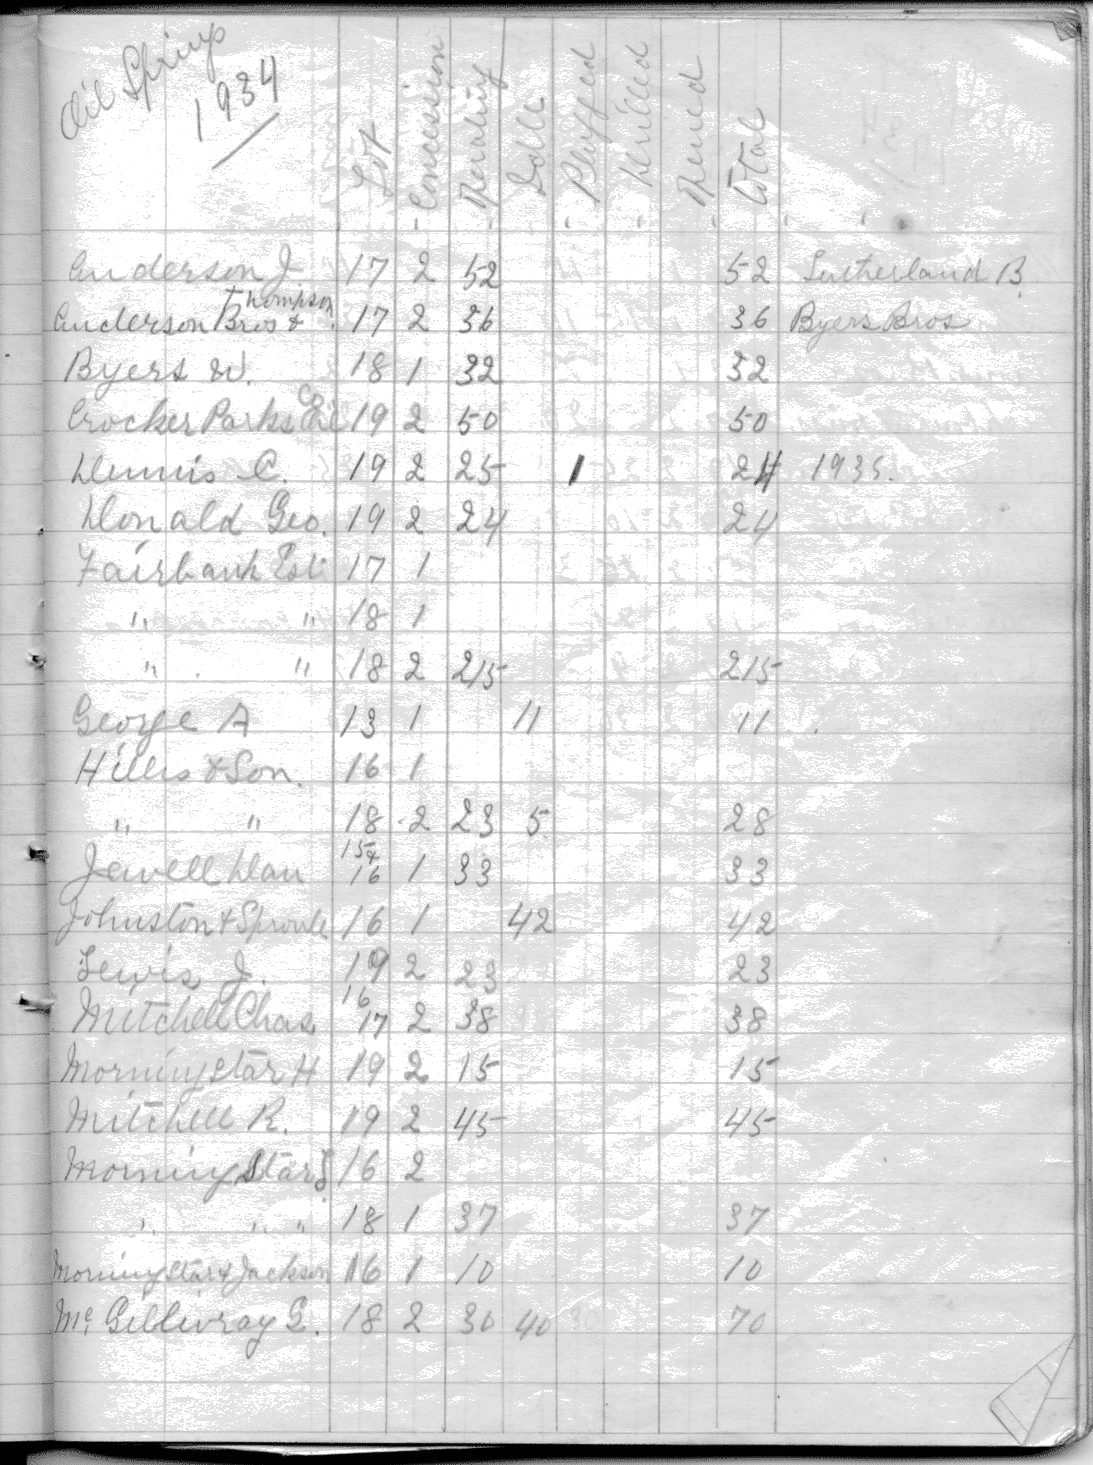 Oil Springs
1934
Lot Concession Operating Idle Plugged Drilled Total
Anderson J 17 2 52 52 Sutherland B.
Anderson Bros & Thompson 17 2 36 36 Byers Bros
Byers W. 18 1 32 32
Crocker Parks Oil Co 19 2 50 50
Dennis C. 19 2 25 1 24 1935.
Donald Geo. 19 2 24 24
Fairbank Est 17 1
" " 18 1
" " 18 2 215 215
George A 13 1 11 11
Hillis & Son. 16 1
" " 18 2 23 5 28
Jewell Dan 15 & 16 1 33 33
Johnston & Sproule 16 1 42 42
Lewis J. 19 2 23 23
Mitchell Chas. 16 17 2 38 38
Morningstar H 19 2 15 15
Mitchell R. 19 2 45 45
Morning Star 16 2
" " " 18 1 37 37
Morningstar & Jackson 16 1 10 10
Mc Gillivray G. 18 2 30 40 70